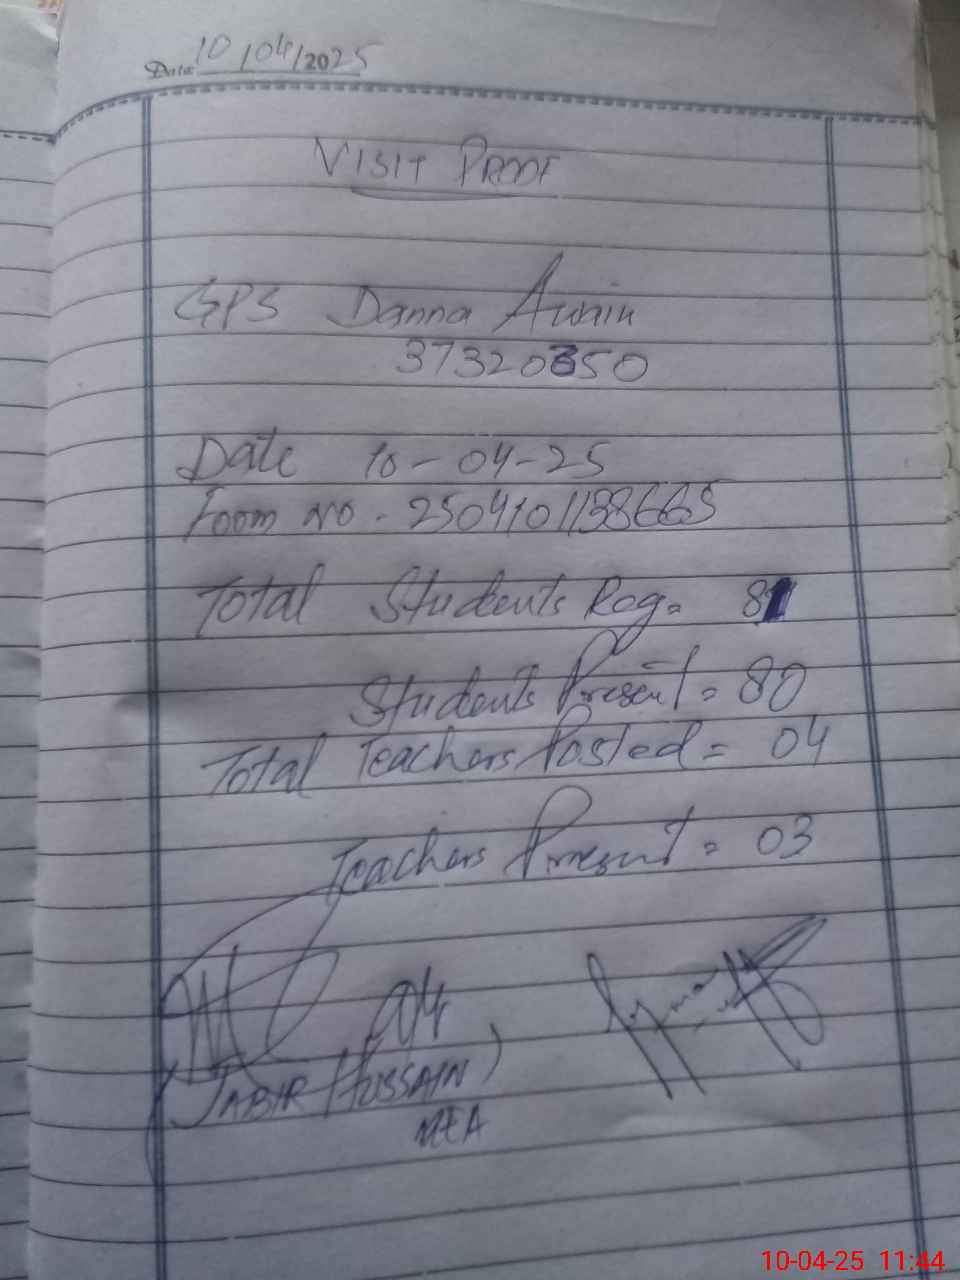 Date: 10/04/2025
VISIT PROOF
GPS Danna Awain
37320350
Date 10-04-25
Foom No. 2504101138665
Total Students Reg= 81
Students Present= 80
Total Teachers Posted= 04
Teachers Present= 03
04
(JABIR HUSSAIN)
MEA
10-04-25 11:44